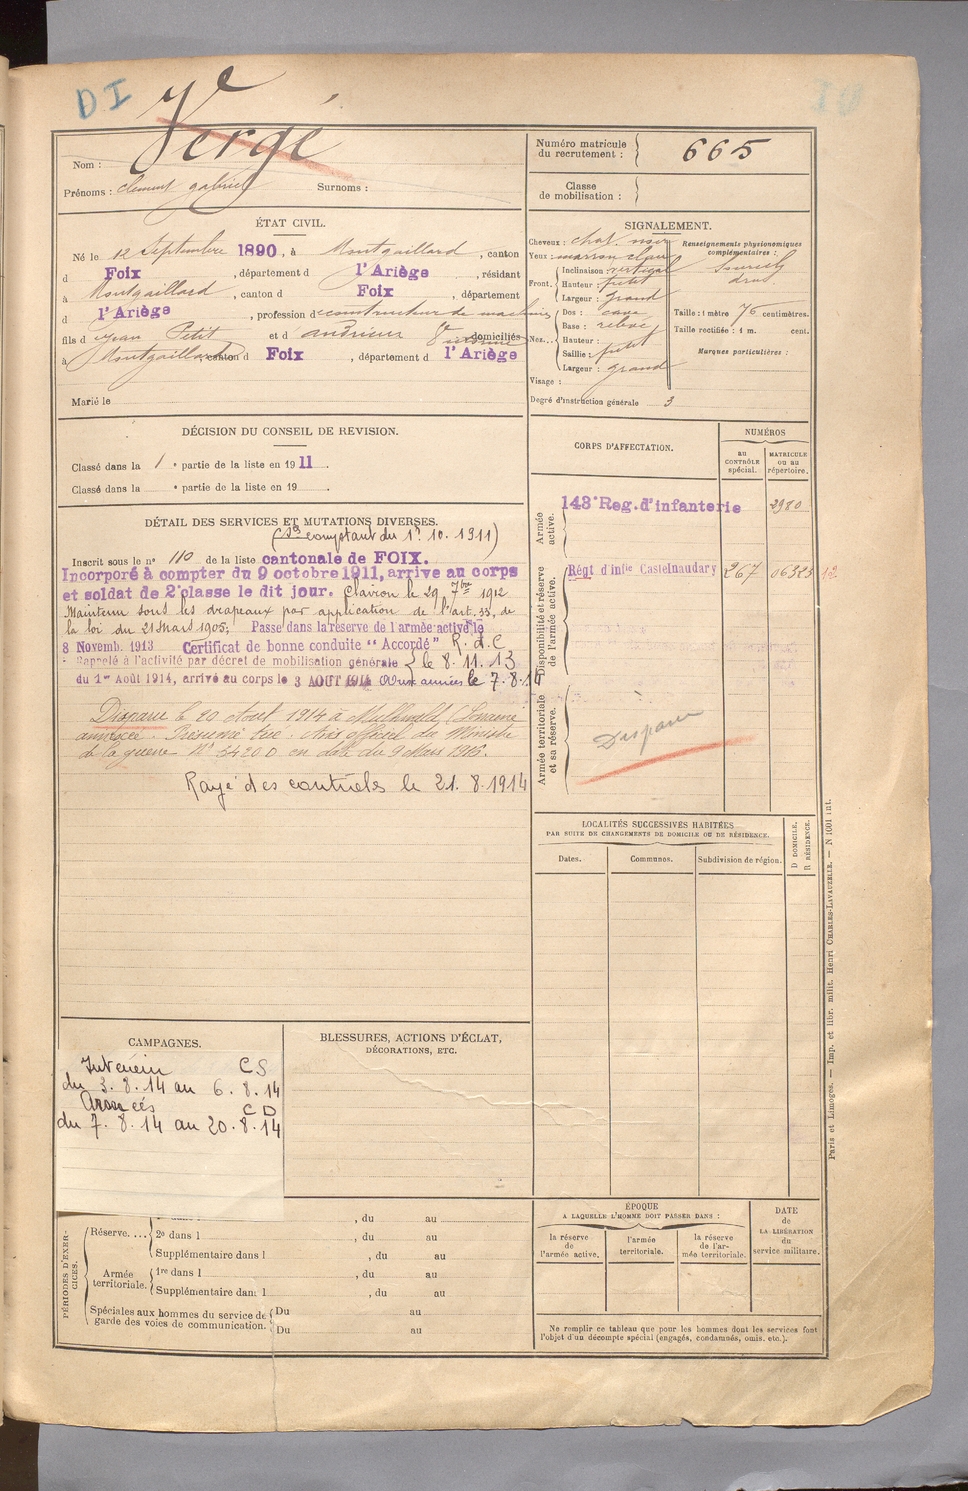 DI
Vergé
Nom :
Prénoms : Clément Gabriel Surnoms :
Numéro matricule du recrutement : 665
Classe de mobilisation :
ÉTAT CIVIL.
Né le 12 Septembre 1890, à Montgaillard, canton
d Foix, département d l'Ariège, résidant
à Montgaillard, canton d Foix, département
d l'Ariège, profession de constructeur de machines
fils d Jean Petit et d domiciliés
à Montgaillard canton d Foix, département d l'Ariège
Marié le
SIGNALEMENT.
Cheveux : chat. noir
Yeux : marron clair
Front. Inclinaison : vertical
Hauteur : petit
Largeur : grand
Nez. Dos : cave
Base : relevé
Hauteur :
Saillie : petit
Largeur : grand
Visage :
Degré d'instruction générale 3
Renseignements physionomiques complémentaires :
Sourcils drus
Taille : 1 mètre 76 centimètres.
Taille rectifiée : 1 m. cent.
Marques particulières :
DÉCISION DU CONSEIL DE REVISION.
Classé dans la 1e partie de la liste en 1911.
Classé dans la e partie de la liste en 19 .
CORPS D'AFFECTATION.
NUMÉROS
au CONTRÔLE spécial.
MATRICULE ou au répertoire.
Armée active.
143e Reg. d'infanterie 2980
Disponibilité et réserve de l'armée active.
Régt d'infie Castelnaudary 267 06323 12
Armée territoriale et sa réserve.
Disparu
DÉTAIL DES SERVICES ET MUTATIONS DIVERSES.
(Sce comptant du 1r. 10. 1911)
Inscrit sous le no 110 de la liste cantonale de FOIX.
Incorporé à compter du 9 octobre 1911, arrive au corps
et soldat de 2e classe le dit jour. Clairon le 29 7bre 1912
Maintenu sous les drapeaux par application de l'art. 33, de
la loi du 21 Mars 1905; Passe dans la réserve de l'armée active le
8 Novemb. 1913 Certificat de bonne conduite "Accordé" R. d. C
Rappelé à l'activité par décret de mobilisation générale le 8. 11. 13
du 1er Août 1914, arrivé au corps le 3 AOUT 1914 Aux armées le 7. 8. 14
Disparu le 20 Août 1914 à (Lorraine
annexée. Présumé tué. Avis officiel du Ministre
de la guerre No 3420 D en date du 9 Mars 1916.
Rayé des contrôles le 21. 8. 1914
LOCALITÉS SUCCESSIVES HABITÉES
PAR SUITE DE CHANGEMENTS DE DOMICILE OU DE RÉSIDENCE.
Dates. Communes. Subdivision de région. D DOMICILE. R RÉSIDENCE.
CAMPAGNES.
Intérieur CS
du 3. 8. 14 au 6. 8. 14
Armées CD
du 7. 8. 14 au 20. 8. 14
BLESSURES, ACTIONS D'ÉCLAT,
DÉCORATIONS, ETC.
PÉRIODES D'EXERCICES.
, du au
Réserve.... 2e dans l , du au
Supplémentaire dans l , du au
Armée territoriale. 1re dans l , du au
Supplémentaire dans l , du au
Spéciales aux hommes du service de garde des voies de communication. Du au
Du au
ÉPOQUE
A LAQUELLE L'HOMME DOIT PASSER DANS :
la réserve de l'armée active.
l'armée territoriale.
la réserve de l'armée territoriale.
DATE de LA LIBÉRATION du service militaire.
Ne remplir ce tableau que pour les hommes dont les services font
l'objet d'un décompte spécial (engagés, condamnés, omis. etc.).
Paris et Limoges. — Imp. et libr. milit. Henri CHARLES-LAVAUZELLE. — N 1001 int.